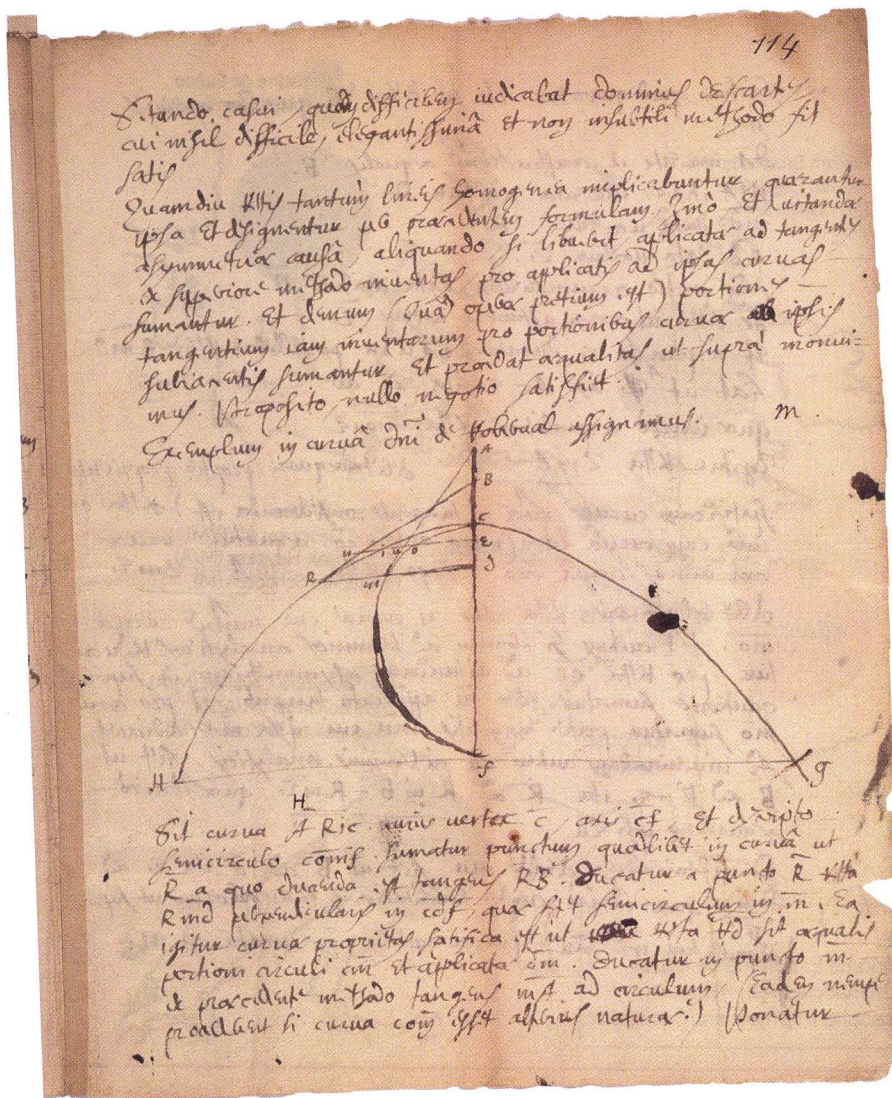 114
Sitando casui, quem difficilem iudicabat dominus Descartes
cui nihil difficile, elegantissimâ et non insubtili methodo fit
satis
Quamdiu rectis tantùm lineis homogenea implicabuntur, quærantur
ipsa et designentur per præcedentem formulam. Imò, et vitandæ
asymmetriæ causâ, aliquando si libuerit, aplicatæ ad tangentes
ex superiore methodo inventas, pro aplicatis ad ipsas curvas
sumantur. Et demum (quod operæ pretium est) portiones
tangentium iam inventarum pro portionibus curvæ ipsis
subiacentis sumantur, et procedat æqualitas ut suprà monui=
mus. Proposito nullo negotio satisfiet.
Exemplum in curvâ Dni de Roberval assignamus. m.
A
B
C
n i u o E
R m D
H F G
H
Sit curva HRic cuius vertex c, axis cf et descripto
semicirculo comf sumatur punctum quodlibet in curvâ ut
R a quo ducenda est tangens RB. Ducatur a puncto R recta
Rmd perpendicularis in cdf, quæ secet semicirculum in m. Ea
igitur curvæ proprietas specifica est ut recta Rd sit æqualis
portioni circuli cm et aplicatæ dm. Ducatur in puncto m
ex præcedente methodo tangens mA ad circulum (eadem nempe
procederent si curva com esset alterius naturæ.) Ponatur